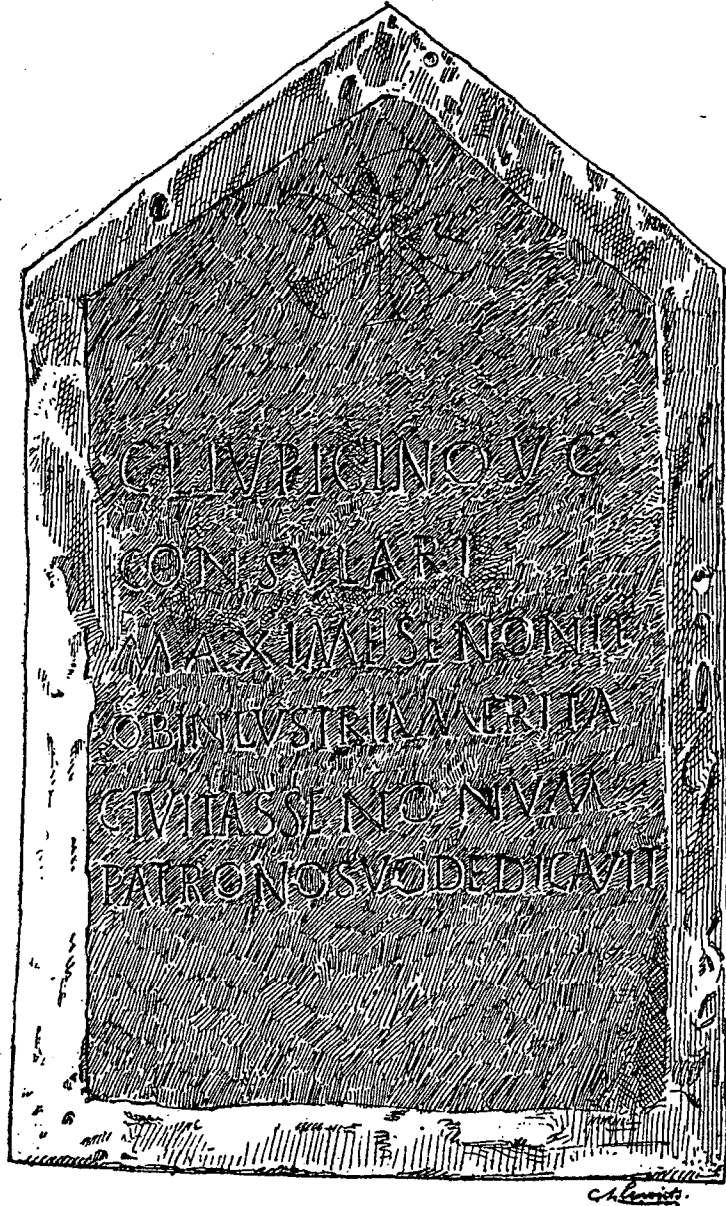 A Ω
CL LVPICINO V C
CONSVLARI
MAXIME SENONIE
OB INLVSTRIA MERITA
CIVITAS SENONVM
PATRONO SVO DEDICAVIT